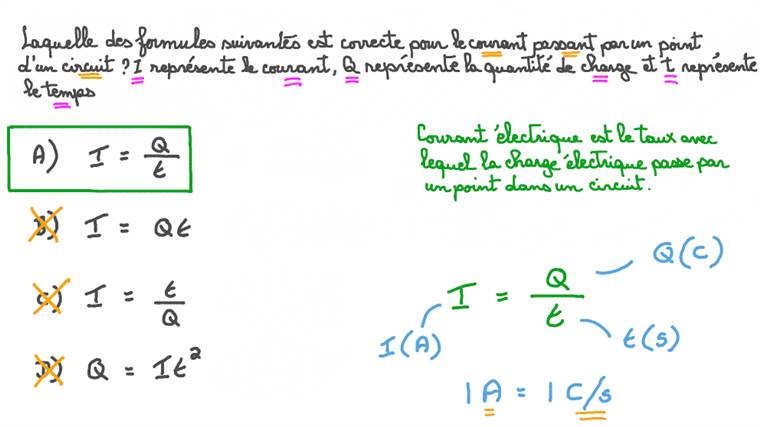 Laquelle des formules suivantes est correcte pour le courant passant par un point
d'un circuit ? I représente le courant, Q représente la quantité de charge et t représente
le temps
A) I = Q/t
B) I = Qt
C) I = t/Q
D) Q = It²
Courant électrique est le taux avec
lequel la charge électrique passe par
un point dans un circuit.
I = Q/t
Q(C)
I(A)
t(s)
1 A = 1 C/s